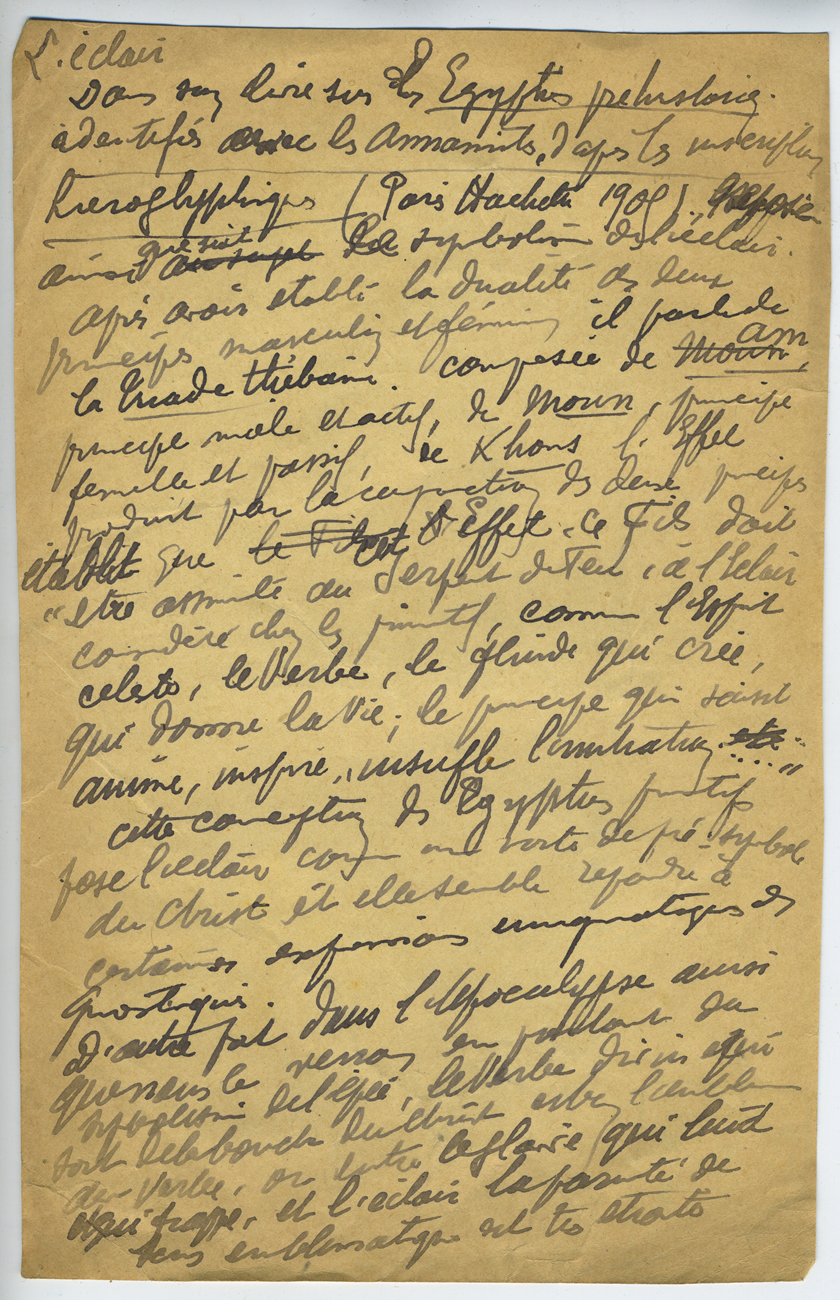 L'éclair
Dans son livre sur Les Egyptes préhistoriq.
identifiés avec les Annamites, d'après les inscriptions
hieroglyphiques (Paris Hachette 190
ainsi que suit au sujet le symbolisme de l'éclair.
après avoir etabli la dualité des deux
principes masculin et féminin il parle de
la triade thébaine. composée de Moun am,
principe male et actif, de Moun, principe
femelle et passif, de Khons l'Effet
produit par la conjonction des deux principes
établit que le Fils est l'Effet. ce Fils doit
"etre assimilé au Serpent de Feu, à l'Eclair
considéré chez les primitifs, comme l'Esprit
celeste, le Verbe, le fluide qui crée,
qui donne la Vie; le principe qui saisit
anime, inspire, insufle l'initiation etc...."
cette conception des Egyptes primitifs
pose l'eclair comme une sorte de pré-symbole
du Christ et elle semble repondre à
certaines expressions enigmatiques des
gnostiques.
D'autre part dans l'Apocalypse ainsi
que nous le verrons en parlant du
symbolisme de l'épée, le Verbe divin
sort de la bouche du Christ l'emblème
du Verbe, or entre le glaive qui luit
et qui frappe, et l'éclair la parenté de
sens emblématique est très étroite